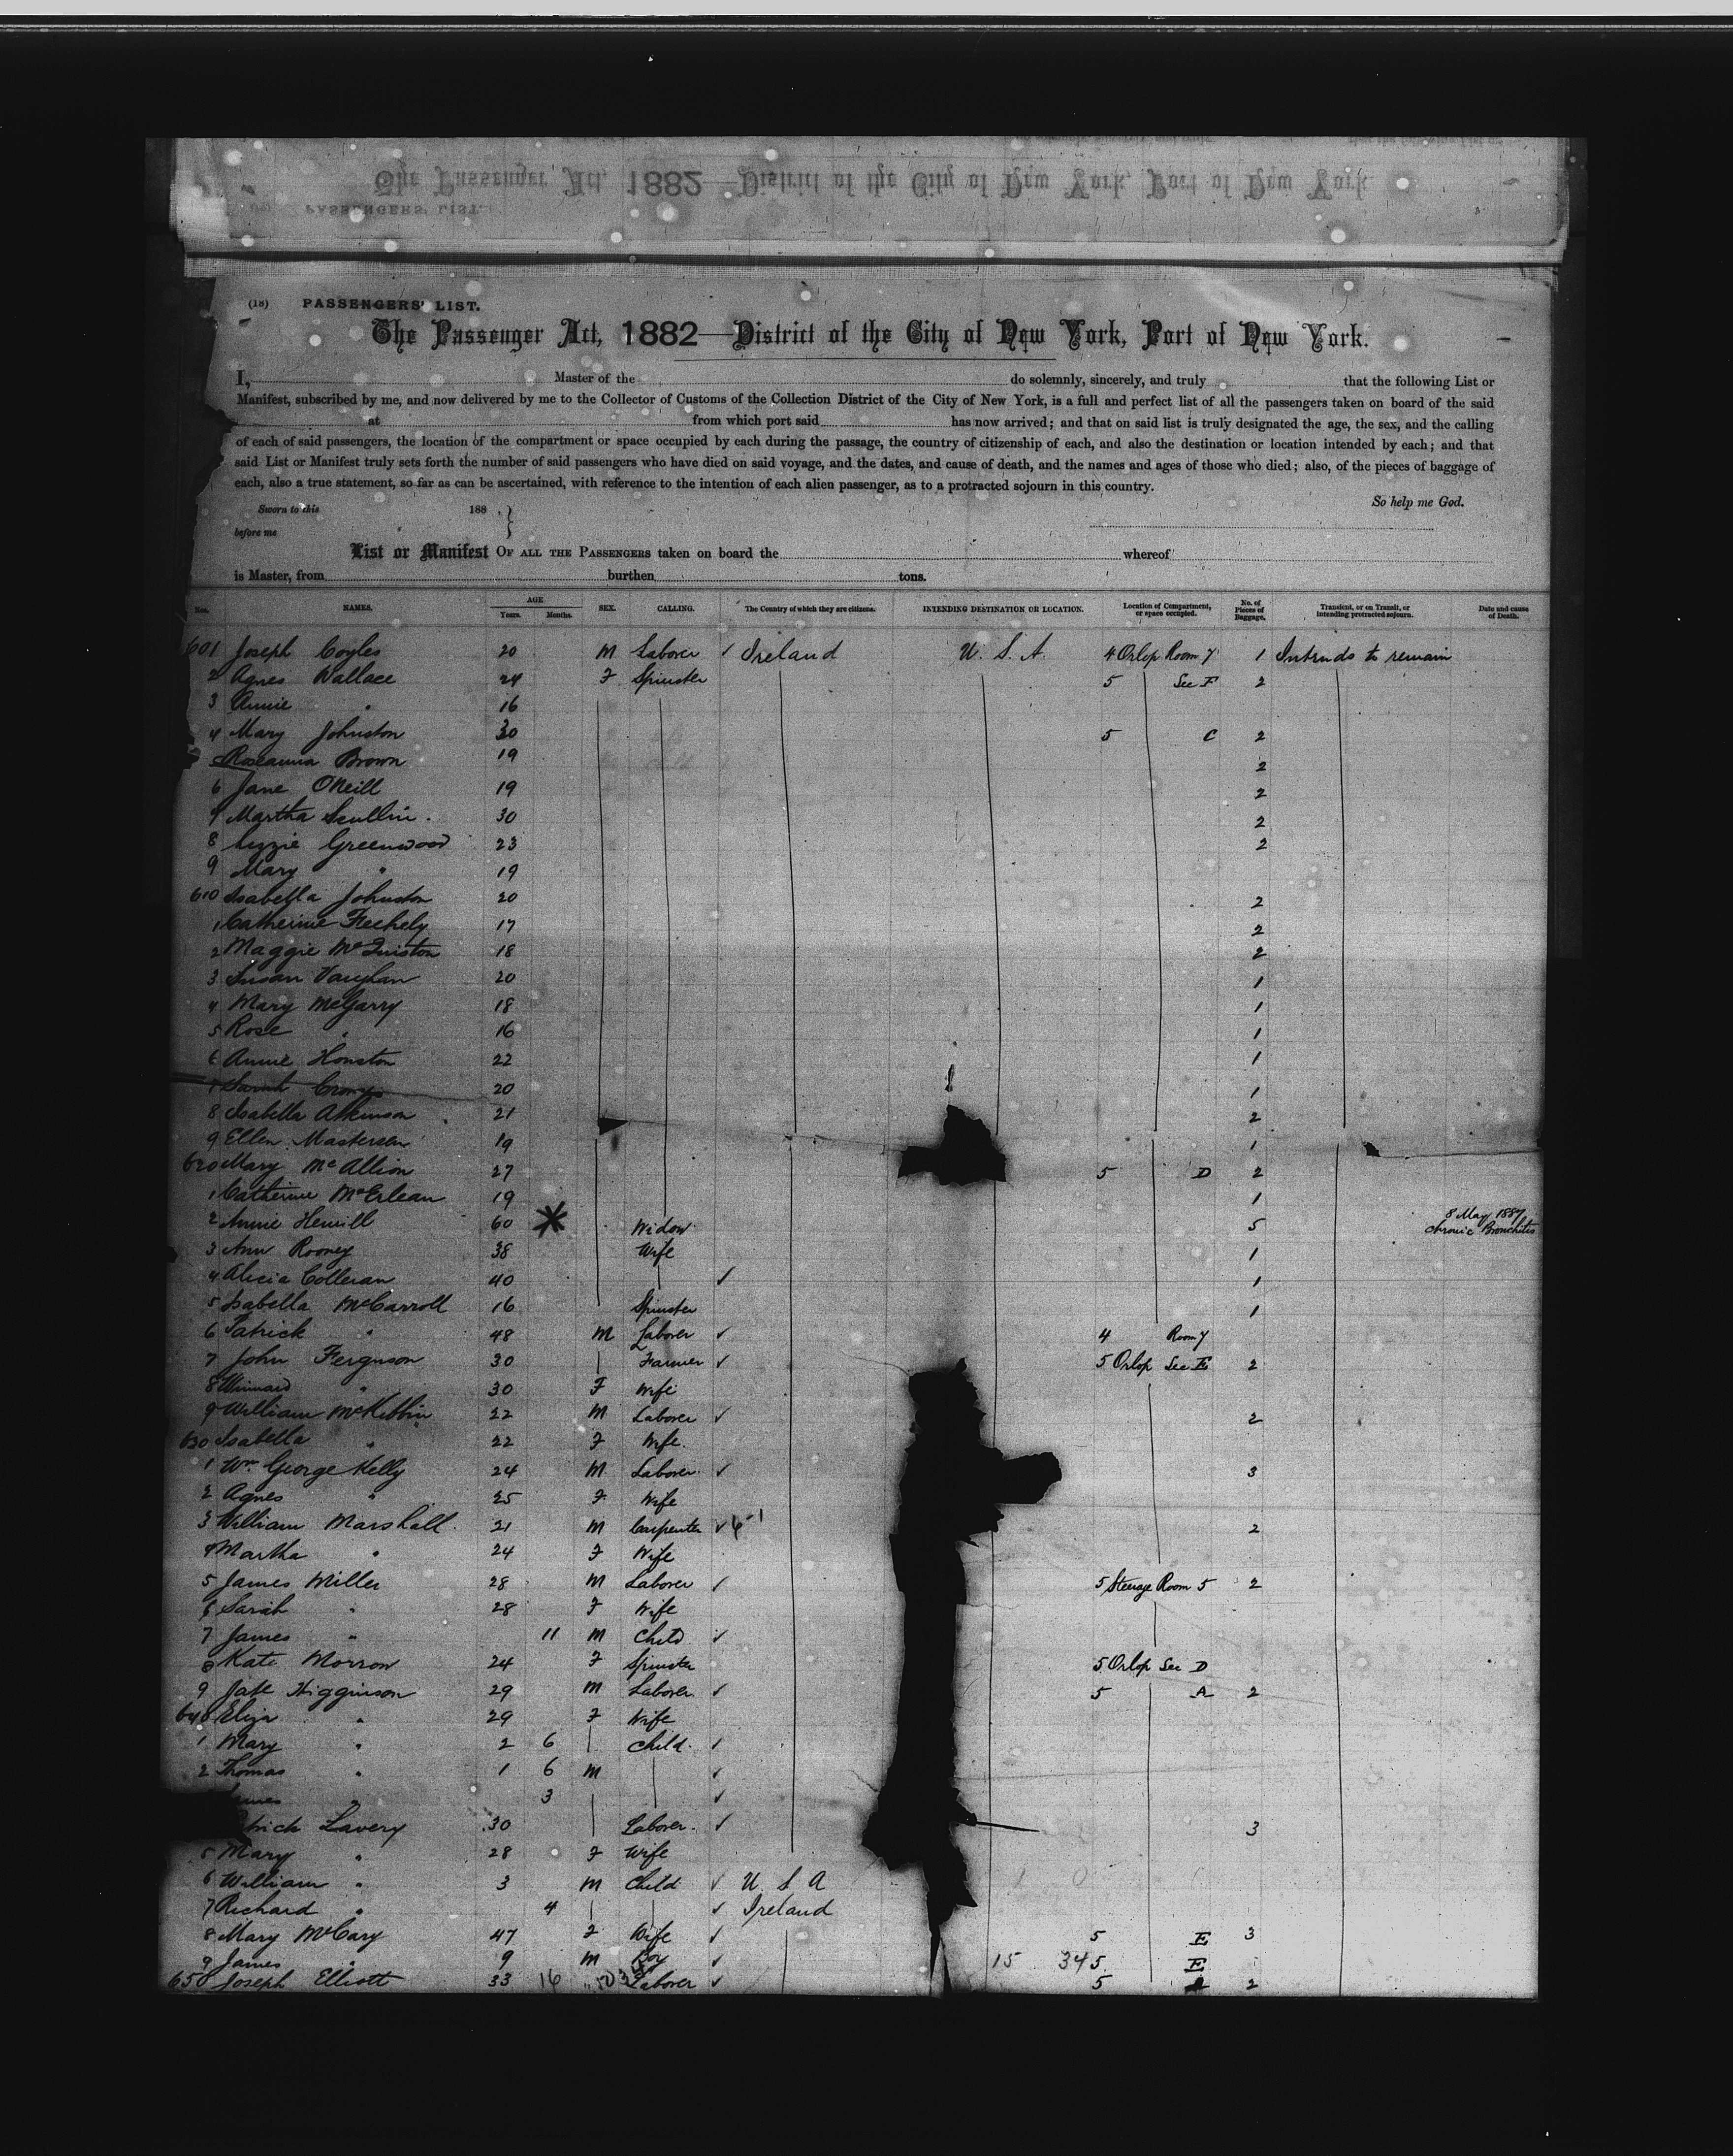 (18) PASSENGERS' LIST.
The Passenger Act, 1882—District of the City of New York, Port of New York.
I, Master of the do solemnly, sincerely, and truly that the following List or
Manifest, subscribed by me, and now delivered by me to the Collector of Customs of the Collection District of the City of New York, is a full and perfect list of all the passengers taken on board of the said
at from which port said has now arrived; and that on said list is truly designated the age, the sex, and the calling
of each of said passengers, the location of the compartment or space occupied by each during the passage, the country of citizenship of each, and also the destination or location intended by each; and that
said List or Manifest truly sets forth the number of said passengers who have died on said voyage, and the dates, and cause of death, and the names and ages of those who died; also, of the pieces of baggage of
each, also a true statement, so far as can be ascertained, with reference to the intention of each alien passenger, as to a protracted sojourn in this country.
So help me God.
Sworn to this 188 .}
before me
List or Manifest OF ALL THE PASSENGERS taken on board the whereof
is Master, from burthen tons.
Nos. NAMES. AGE Years. Months. SEX. CALLING. The Country of which they are citizens. INTENDING DESTINATION OR LOCATION. Location of Compartment, or space occupied. No. of Pieces of Baggage. Transient, or on Transit, or intending protracted sojourn. Date and cause of Death.
601 Joseph Coyles 20 M Laborer ✓ Ireland U. S. A. 4 Orlop Room 7 1 Intends to remain
2 Agnes Wallace 24 F Spinster 5 Sec F 2
3 Annie " 16
4 Mary Johnston 30 5 C 2
5 Roseanna Brown 19 2
6 Jane ONeill 19 2
7 Martha Scullin. 30 2
8 Lizzie Greenwood 23 2
9 Mary " 19
610 Isabella Johnston 20 2
1 Catherine Feehely 17 2
2 Maggie McQuiston 18 2
3 Susan Vaughan 20 1
4 Mary McGarry 18 1
5 Rose " 16 1
6 Annie Houston 22 1
7 Sarah 20 1
8 Isabella Atkinson 21 2
9 Ellen Masterson 19 1
620 Mary McAllion 27 5 D 2
1 Catherine McErlean 19 1
2 Annie 60 * Widow 5 8 May 1887 Chronic Bronchitis
3 Ann Rooney 38 Wife 1
4 Alicia Colleran 40 ✓ 1
5 Isabella McCarroll 16 Spinster 1
6 Patrick " 48 M Laborer ✓ 4 Room 7
7 John Ferguson 30 Farmer ✓ 5 Orlop Sec E 2
8 " 30 F Wife
9 William McKibbin 22 M Laborer ✓ 2
630 Isabella " 22 F Wife.
1 Wm George Kelly 24 M Laborer ✓ 3
2 Agnes " 25 F Wife
3 William Marshall. 21 M Carpenter ✓ 2
4 Martha " 24 F Wife
5 James Miller 28 M Laborer ✓ 5 Steerage Room 5 2
6 Sarah " 28 F Wife
7 James " 11 M Child ✓
8 Kate Morrow 24 F Spinster 5 Orlop Sec D
9 Higginson 29 M Laborer ✓ 5 A 2
640 Eliza " 29 F Wife
1 Mary " 2 6 Child. ✓
2 Thomas " 1 6 M ✓
ames " 3 ✓
trick Lavery 30 Laborer. ✓ 3
5 Mary " 28 F Wife
6 William " 3 M Child ✓ U S A
7 Richard " 4 ✓ Ireland
8 Mary McCary 47 F Wife ✓ 5 E 3
9 James " 9 M Boy ✓ 15 345 E
650 Joseph Elliott 33 16 Laborer ✓ 5 2